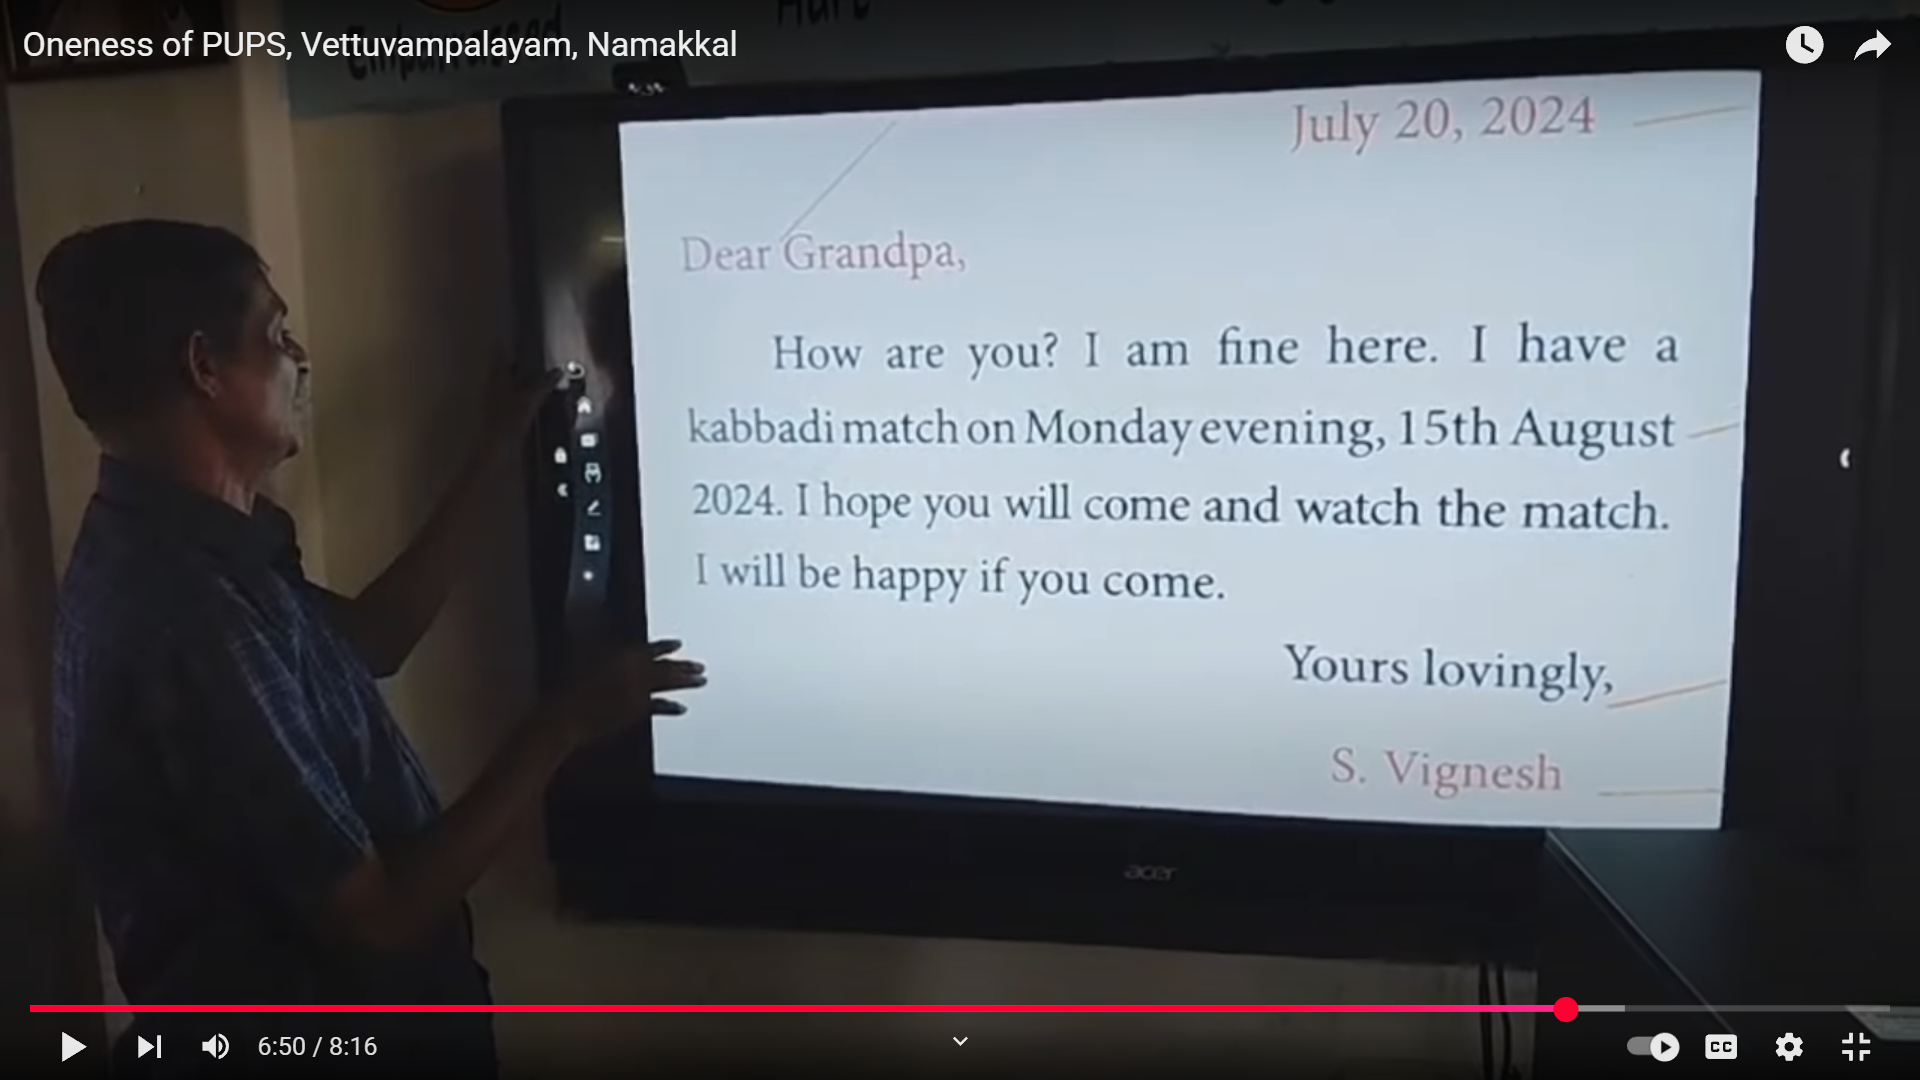 Oneness of PUPS, Vettuvampalayam, Namakkal
July 20, 2024
Dear Grandpa,
How are you? I am fine here. I have a
kabbadi match on Monday evening, 15th August
2024. I hope you will come and watch the match.
I will be happy if you come.
Yours lovingly,
S. Vignesh
acer
6:50 / 8:16
CC